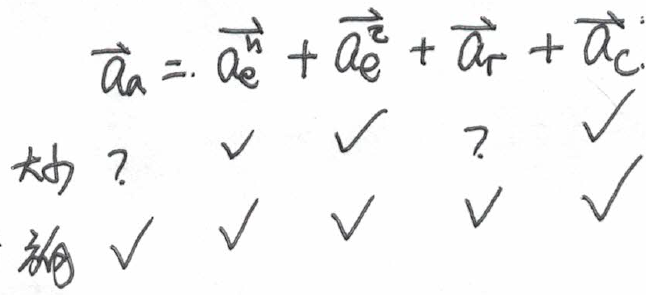 $\vec{a}_a = \vec{a}_e^n + \vec{a}_e^\tau + \vec{a}_r + \vec{a}_c$
大小 ? ✓ ✓ ? ✓
方向 ✓ ✓ ✓ ✓ ✓